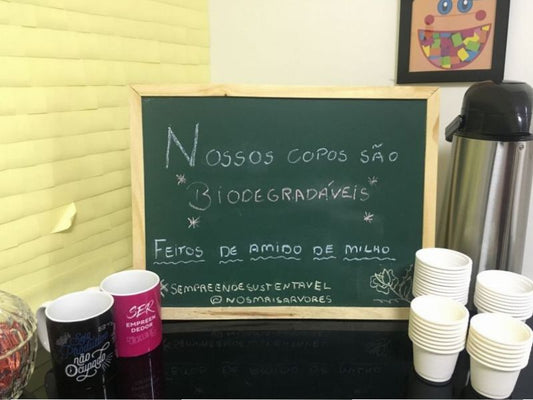 NOSSOS COPOS SÃO
BIODEGRADÁVEIS
FEITOS DE AMIDO DE MILHO
#SEMPREENDESUSTENTAVEL
@NOSMAISARVORES
SER
EMPREEN
DEDOR
não
Ocupado